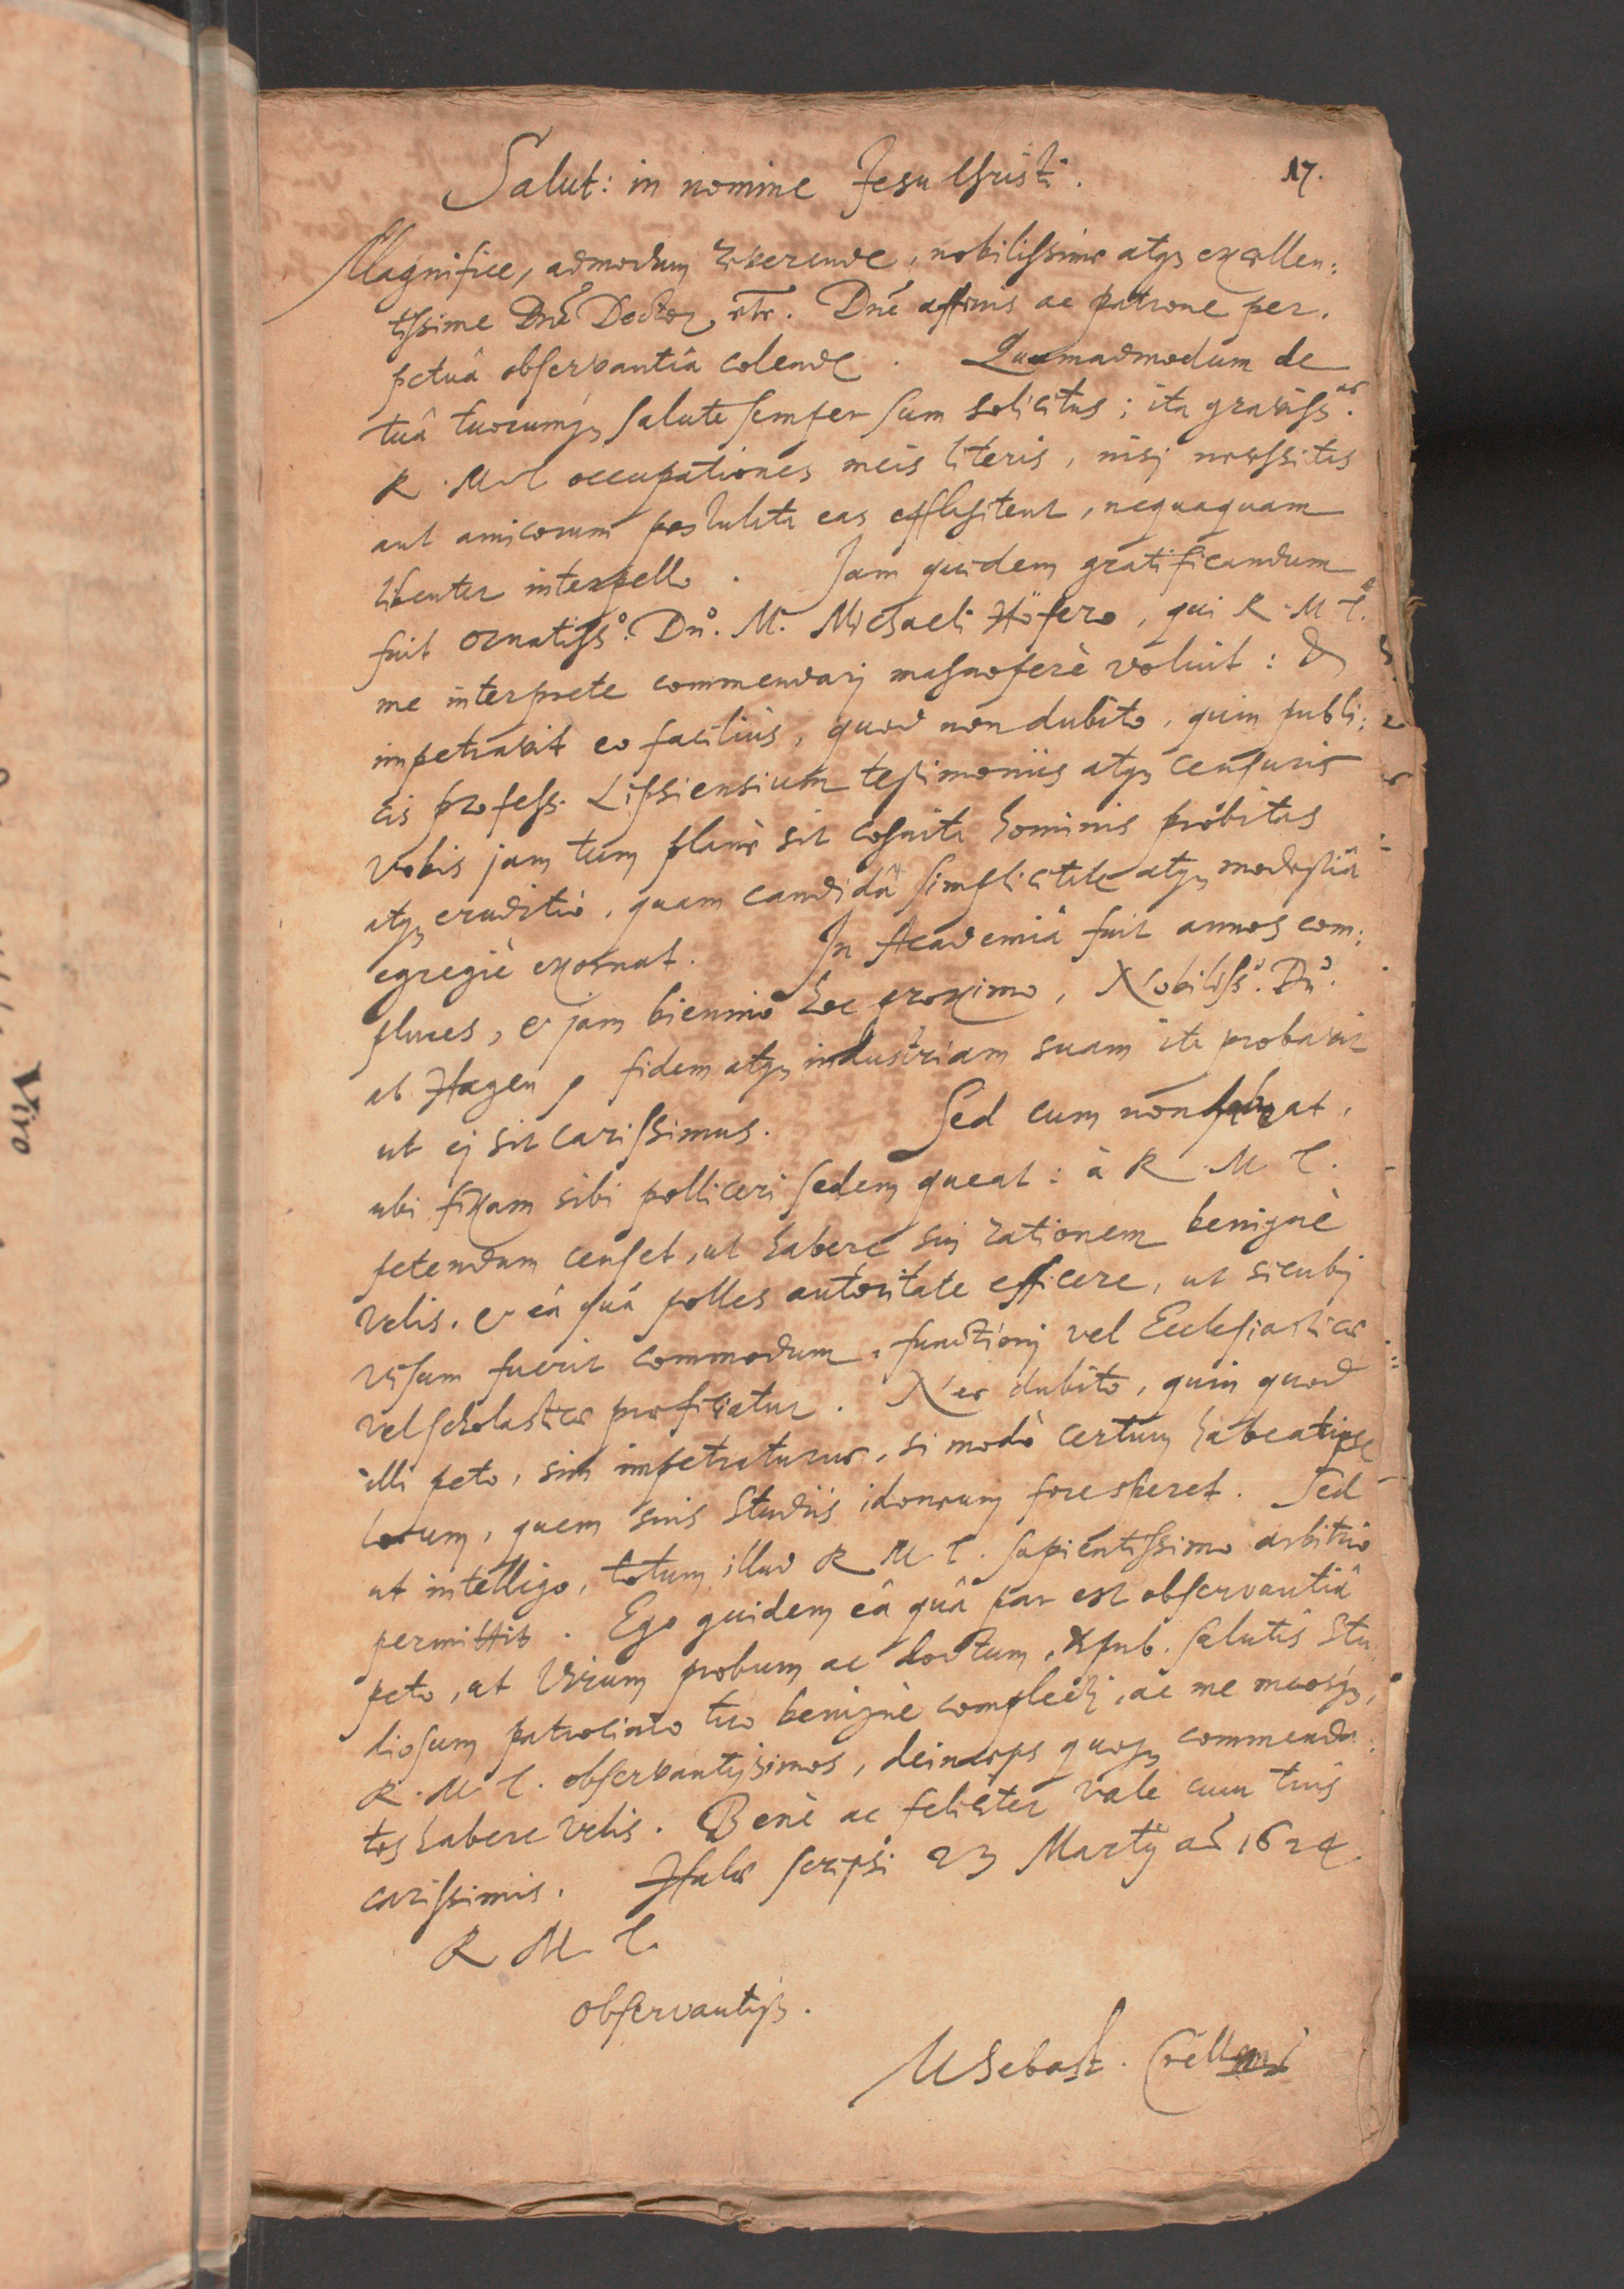 17.
Salut: in nomine Jesu Christi.
Magnifice, admodum reverende, nobilissime atq3 excellen:
tissime Dne Doctor etc. Dne affinis ac patrone per-
petuâ observantiâ colende. Quemadmodum de
tuâ tuorumq3 salute semper sum solicitus; ita graviss.as
R. M. T. occupationes meis literis, nisj necessitas
aut amicorum postulata eas efflagitent, nequaquam
libenter interpello. Jam quidem gratificandum
fuit ornatiss.o Dn.o M. Michaeli Höfero, qui R. M. T.
me interprete commendarj magnoperè voluit: &
impetravit eo facilius, quod non dubito, quin publi:
cis profess. Lipsiensium testimoniis atq3 censuris
vobis jam tum planè sit cognita hominis probitas
atq3 eruditio, quam candidâ simplicitate atq3 modestiâ
egregiè exornat. In Academiâ fuit annos com:
plures, & jam biennio hoc proximo, Nobiliss.o Dn.o
ab Hagen, fidem atq3 industriam suam ita probavit
ut ej sit carissimus. Sed cum non
ubi fixam sibi polliceri sedem queat: à R. M. T.
petendum censet, ut habere suj rationem benignè
velis. & eâ quâ polles autoritate efficere, ut sicubj
visum fuerit commodum, functionj vel Ecclesiasticae
vel scholasticae proficiatur. Nec dubito, quin quod
illi peto, sim impetraturus, si modò certum habeat ipse
locum, quem suis studiis idoneum fore speret. Sed
ut intelligo, totum illud R. M. T. sapientissimo arbitrio
permittit. Ego quidem eâ quâ par est observantiâ
peto, ut Virum probum ac doctum, & pub. salutis stu
diosum patrocinio tuo benignè complecti, ac me meosq3,
R. M. T. observantissimos, deinceps quoq3 commenda:
tos habere velis. Benè ac feliciter vale cum tuis
carissimis. Halae scripsi 23 Martij aõ 1624.
R. M. T.
observantiss.
M Sebast. Crellius
Viro